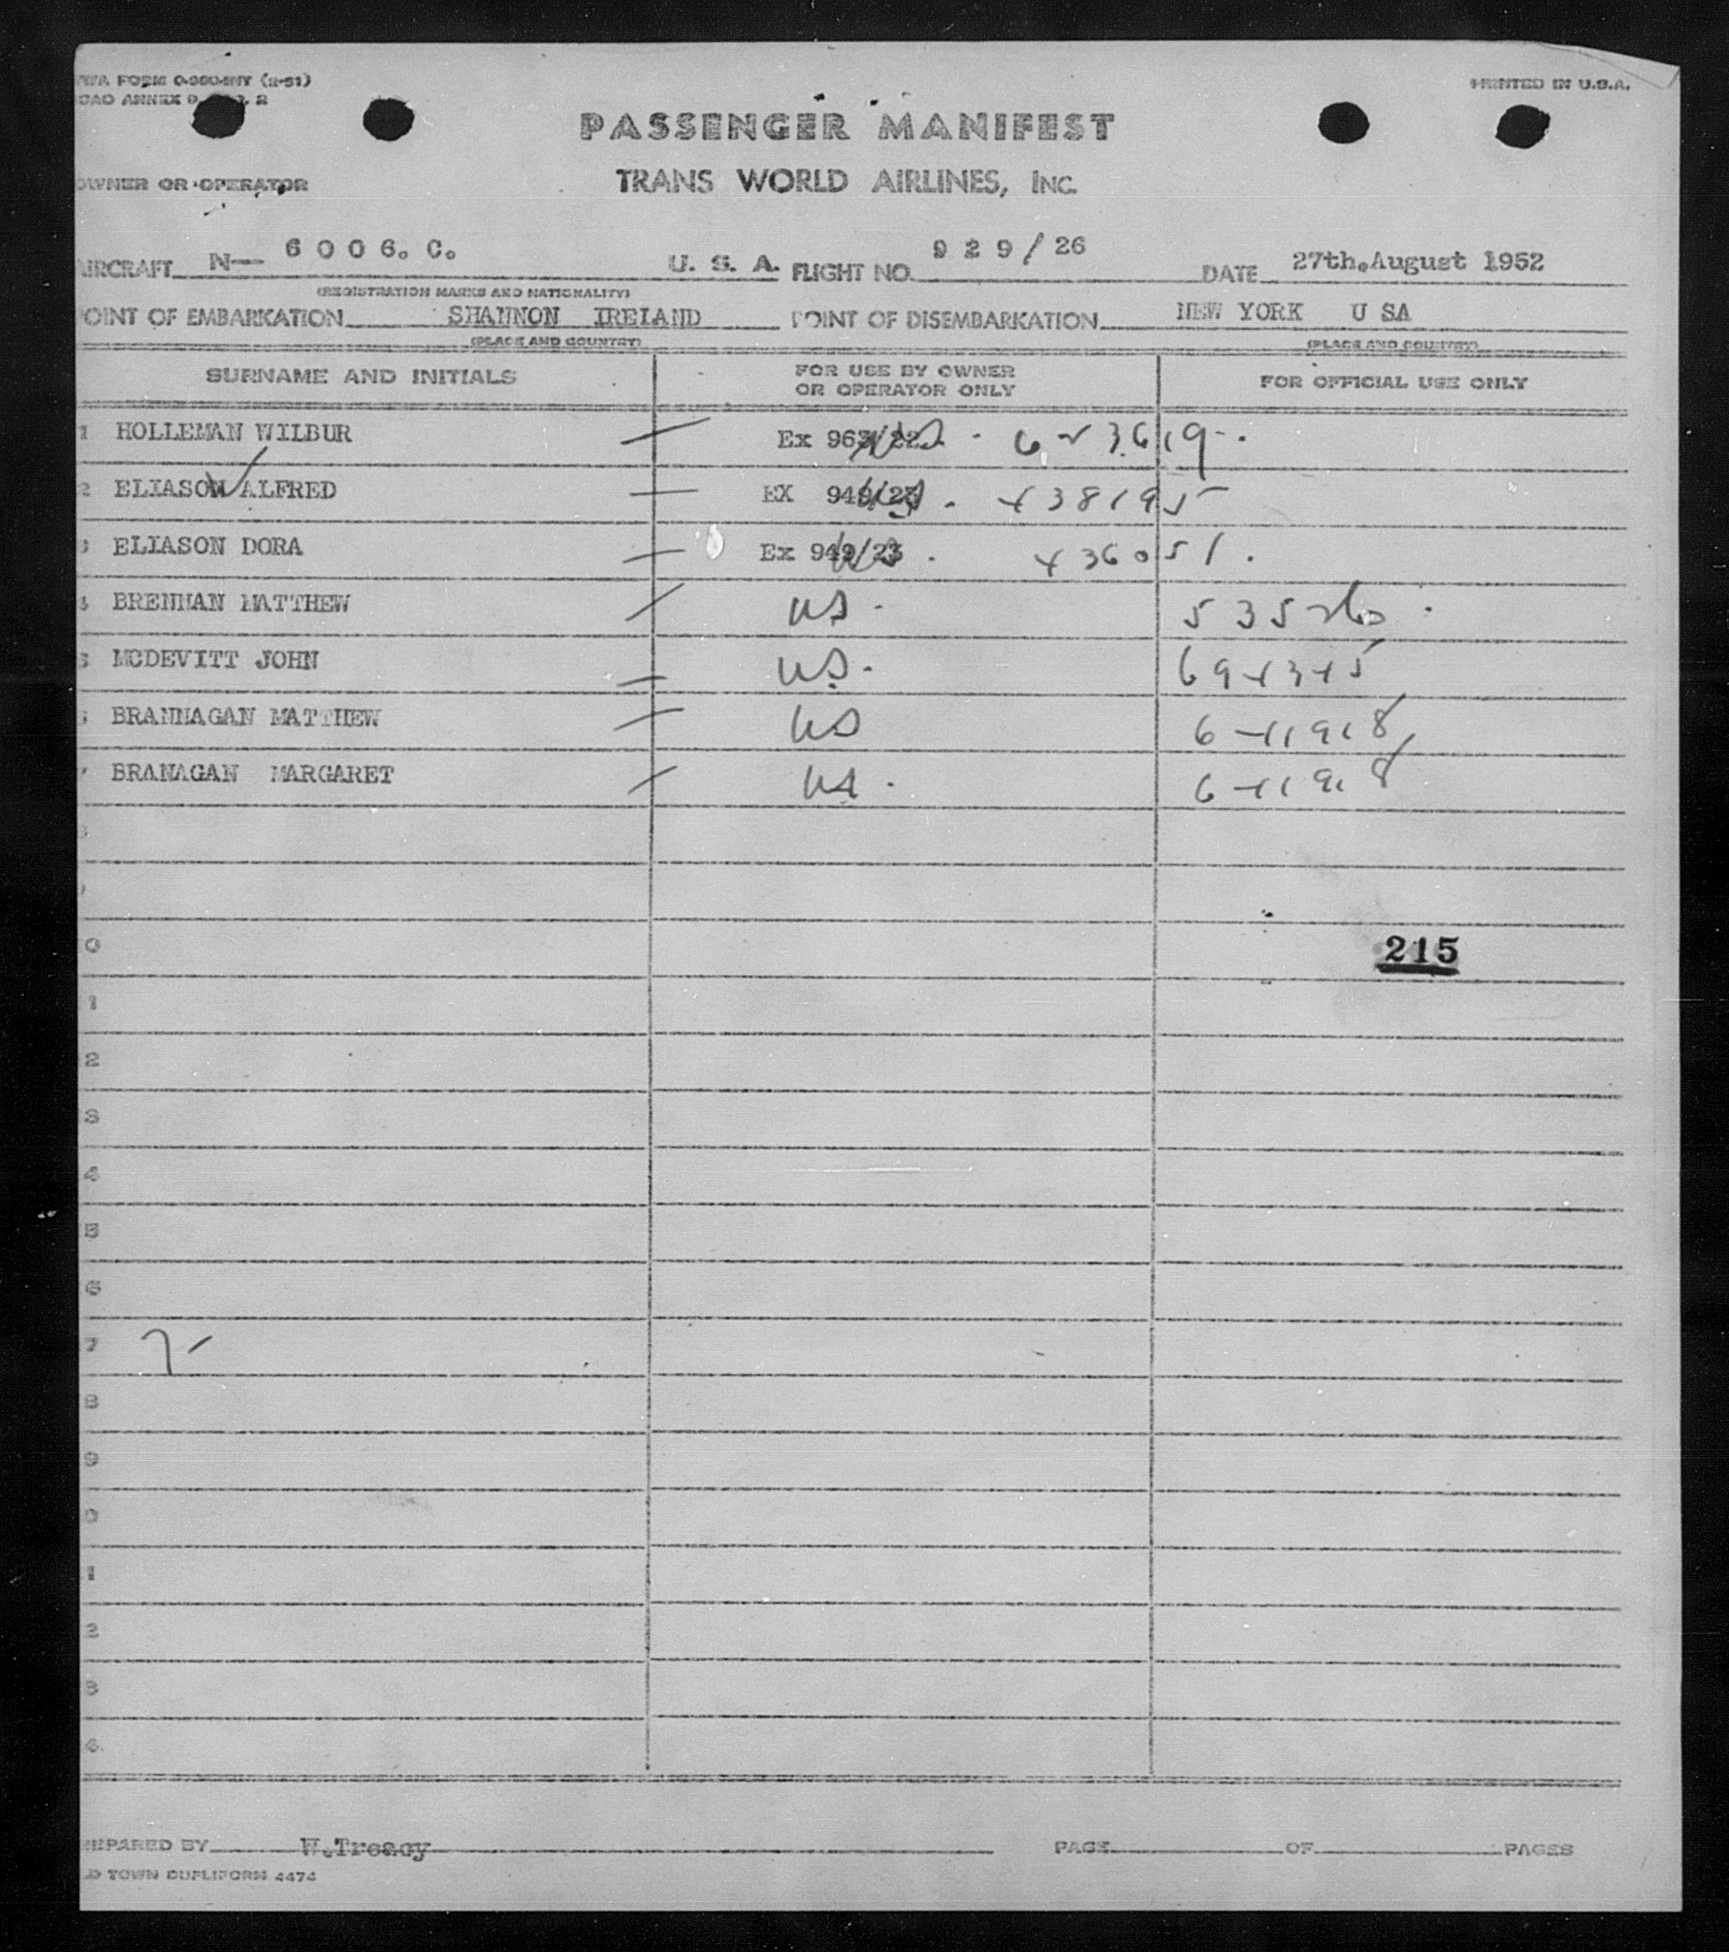 TWA FORM
PRINTED IN U.S.A.
ANNEX 9
PASSENGER MANIFEST
OWNER OR OPERATOR
TRANS WORLD AIRLINES, INC.
AIRCRAFT N— 6 0 0 6. C. U. S. A. FLIGHT NO. 9 2 9 / 26 DATE 27th.August 1952
(REGISTRATION MARKS AND NATIONALITY)
POINT OF EMBARKATION SHANNON IRELAND POINT OF DISEMBARKATION NEW YORK U SA
(PLACE AND COUNTRY) (PLACE AND COUNTRY)
SURNAME AND INITIALS FOR USE BY OWNER OR OPERATOR ONLY FOR OFFICIAL USE ONLY
1 HOLLEMAN WILBUR Ex 963/22. US.
2 ELIASON ALFRED EX 949/23 US.
3 ELIASON DORA Ex 949/23 US.
4 BRENNAN MATTHEW US.
5 MCDEVITT JOHN US.
6 BRANNAGAN MATTHEW US
7 BRANAGAN MARGARET US.
0 215
1
2
3
4
5
6
7 7-
8
9
0
1
2
3
4.
PREPARED BY W.Treacy PAGE OF PAGES
LD TOWN DUPLIFORM 4474